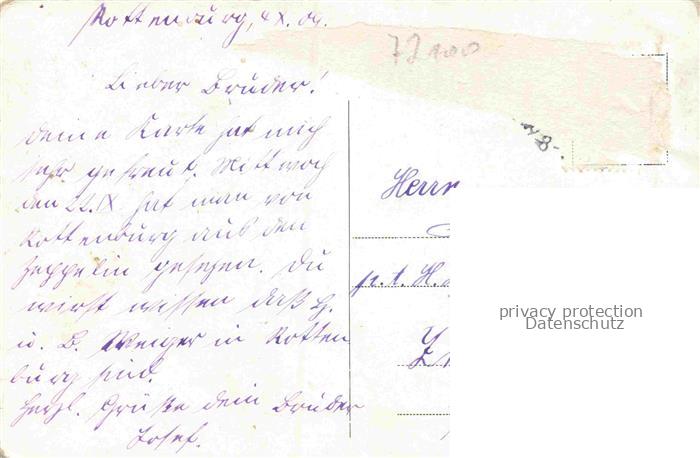 Rottenburg, 4.X.09.
72 100
Lieber Bruder!
Deine Karte hat mich
sehr gefreut. Mittwoch
den 22.IX hat man von
Rottenburg aus den
Zeppelin gesehen. Du
wirst wissen daß H.
u. B. Weiger in Rotten
burg sind.
Herzl. Grüße dein Bruder
Josef.
Herrn
p. t. H.
privacy protection
Datenschutz